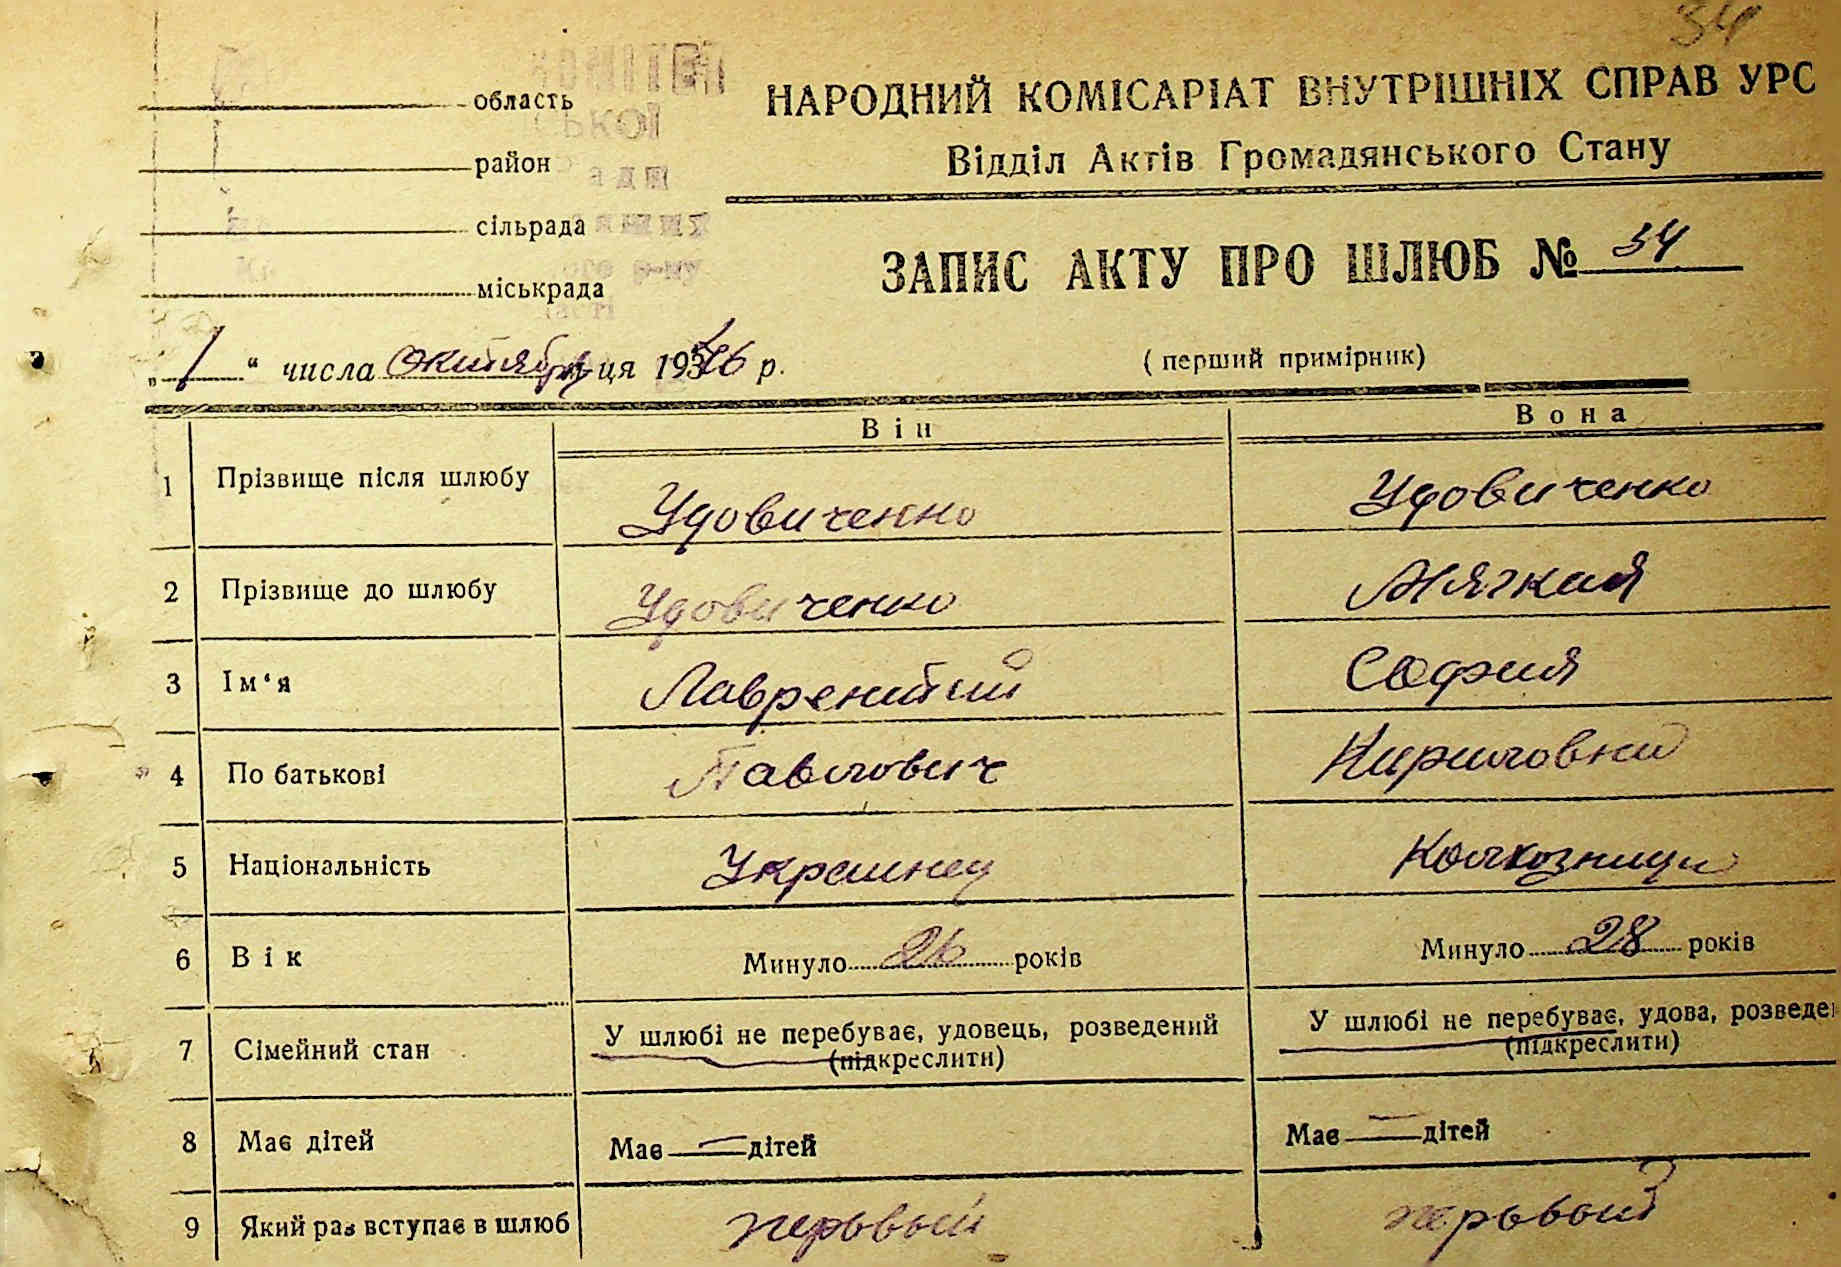 34
КОМІТЕТ
область
СЬКОЇ
НАРОДНИЙ КОМІСАРІАТ ВНУТРІШНІХ СПРАВ УРС
район
ади
Відділ Актів Громадянського Стану
сільрада
ЗАПИС АКТУ ПРО ШЛЮБ № 34
р-ну
міськрада
„ 1 “ числа Октября ця 1946 р.
( перший примірник)
Він
Вона
1 Прізвище після шлюбу Удовиченко Удовиченко
2 Прізвище до шлюбу Удовиченко Мягкая
3 Ім‘я Лаврентий София
4 По батькові Павлович Кириловна
5 Національність Украинец Колхозница
6 Вік Минуло 26 років Минуло 28 років
7 Сімейний стан У шлюбі не перебуває, удовець, розведений У шлюбі не перебуває, удова, розведе
(підкреслити) (підкреслити)
8 Має дітей Має — дітей Має — дітей
9 Який раз вступає в шлюб первый первый